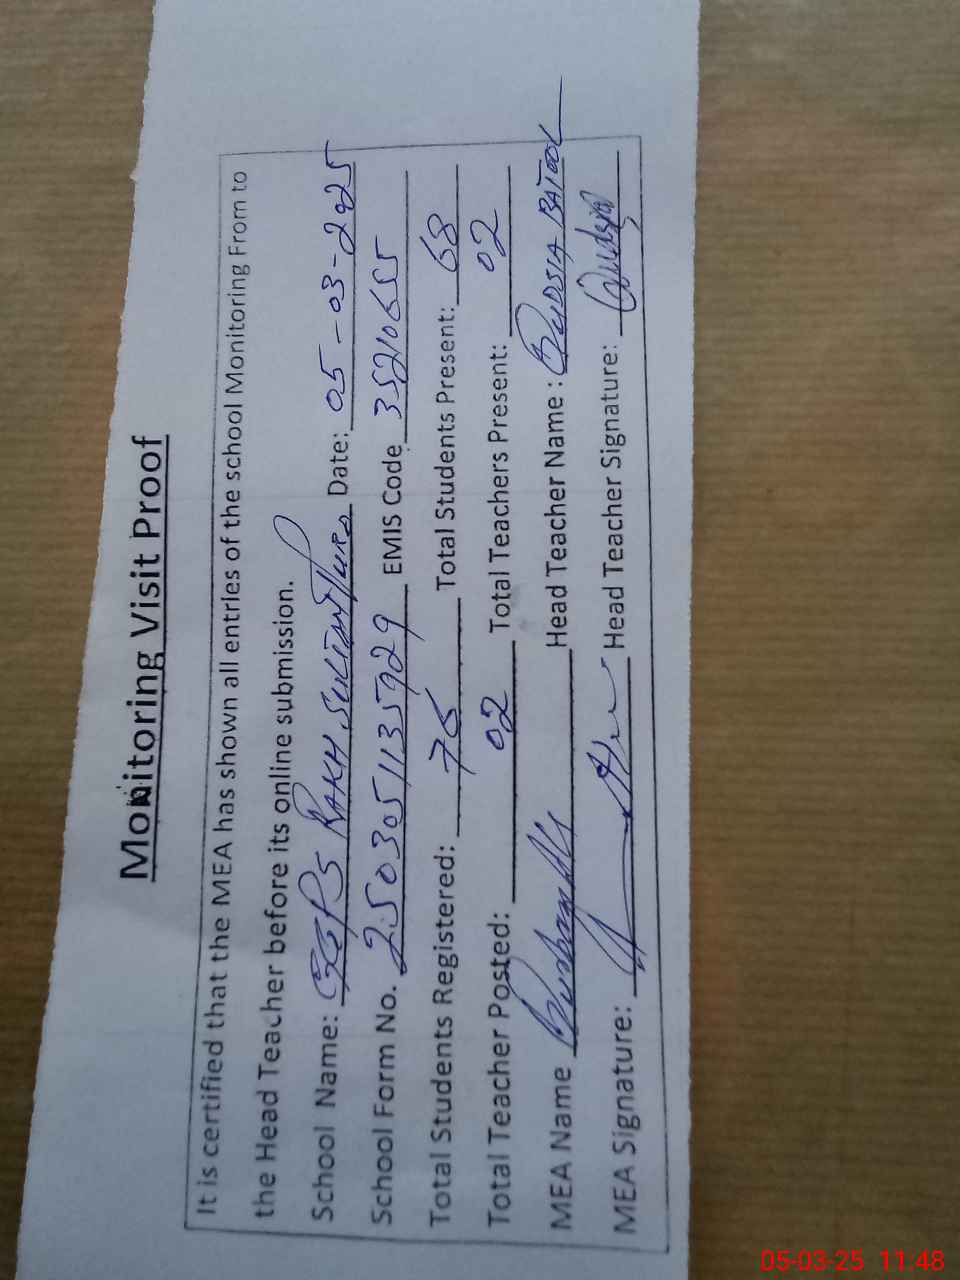 Monitoring Visit Proof
It is certified that the MEA has shown all entries of the school Monitoring From to
the Head Teacher before its online submission.
School Name: GGPS RAKH Date: 05-03-2025
School Form No. 2503051135929 EMIS Code 35210655
Total Students Registered: 76 Total Students Present: 68
Total Teacher Posted: 02 Total Teachers Present: 02
MEA Name Head Teacher Name : QUDSIA BATOOL
MEA Signature: Head Teacher Signature: Qudsia
05-03-25 11:48